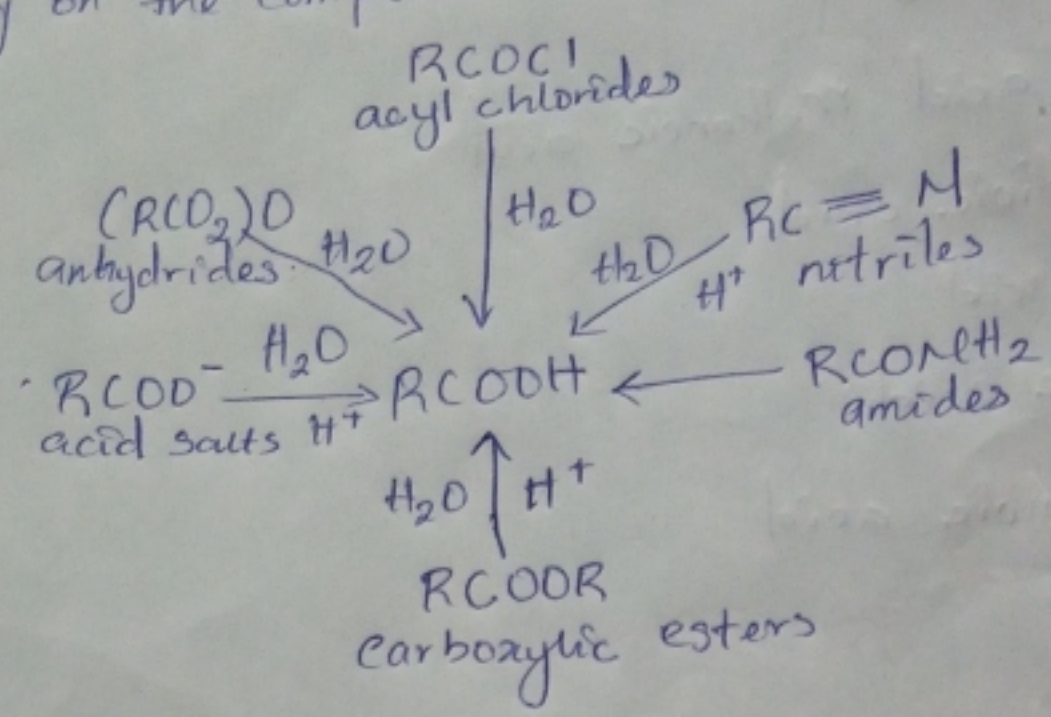 on the comp
RCOCl
acyl chlorides
H₂O
(RCO₂)O
anhydrides
H₂O
RC≡N
nitriles
H₂O
H⁺
RCOO⁻
acid salts
H₂O
H⁺
RCOOH
RCONH₂
amides
H₂O
H⁺
RCOOR
carboxylic esters